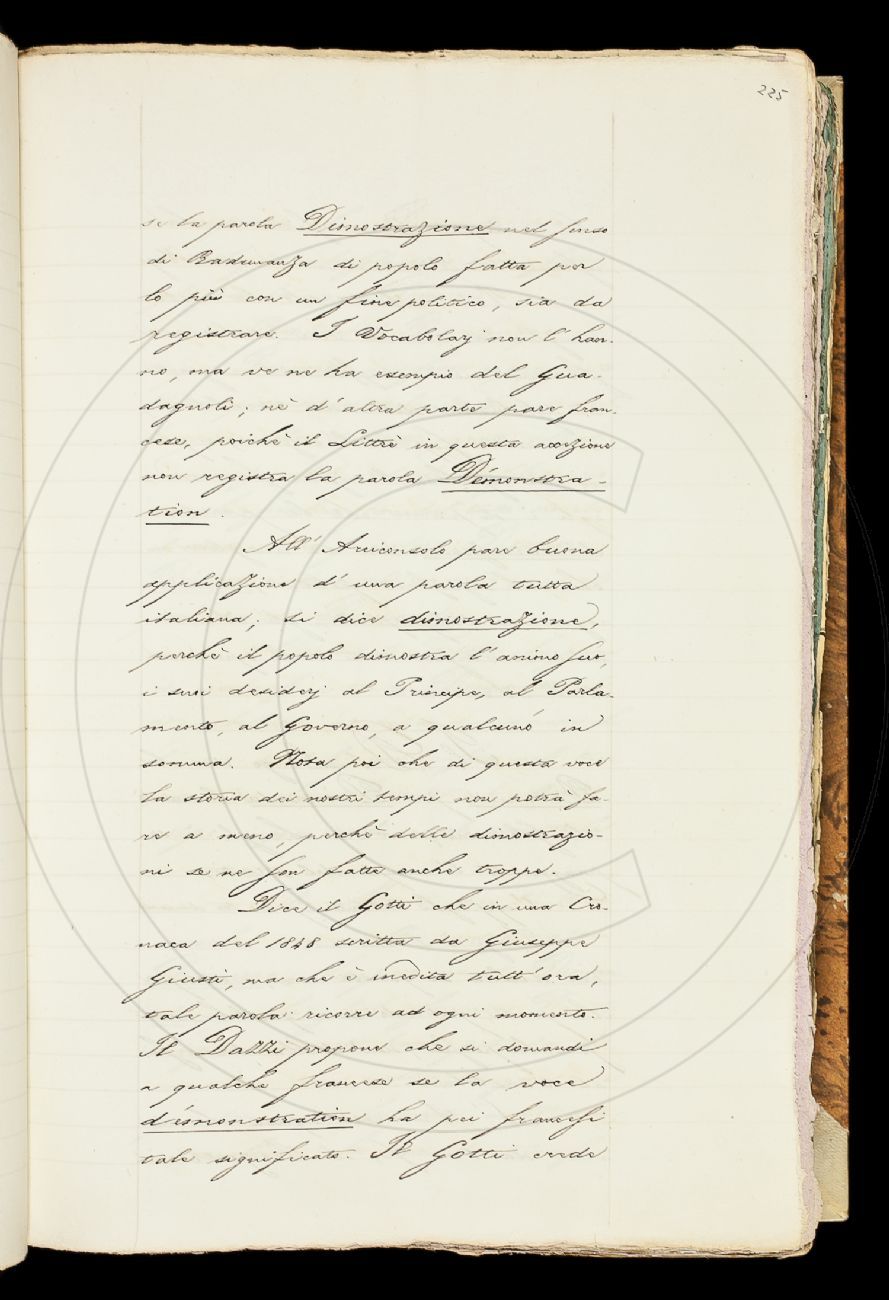 225
se la parola Dimostrazione nel senso
di Radunanza di popolo fatta per
lo più con un fine politico, sia da
registrare. I Vocabolarj non l' han-
no, ma ve ne ha esempio del Gua-
dagnoli; nè d' altra parte pare fran-
cese, poichè il Littrè in questa accezione
non registra la parola Démonstra-
tion.
All' Arciconsolo pare buona
applicazione d' una parola tutta
italiana; si dice dimostrazione,
perchè il popolo dimostra l' animo suo,
i suoi desiderj al Principe, al Parla-
mento, al Governo, a qualcuno in
somma. Nota poi che di questa voce
la storia dei nostri tempi non potrà fa-
re a meno, perchè delle dimostrazio-
ni se ne son fatte anche troppe.
Dice il Gotti che in una Cro-
naca del 1848 scritta da Giuseppe
Giusti, ma che è inedita tutt' ora,
tale parola ricorre ad ogni momento.
Il Dazzi propone che si domandi
a qualche francese se la voce
démonstration ha pei francesi
tale significato. Il Gotti crede